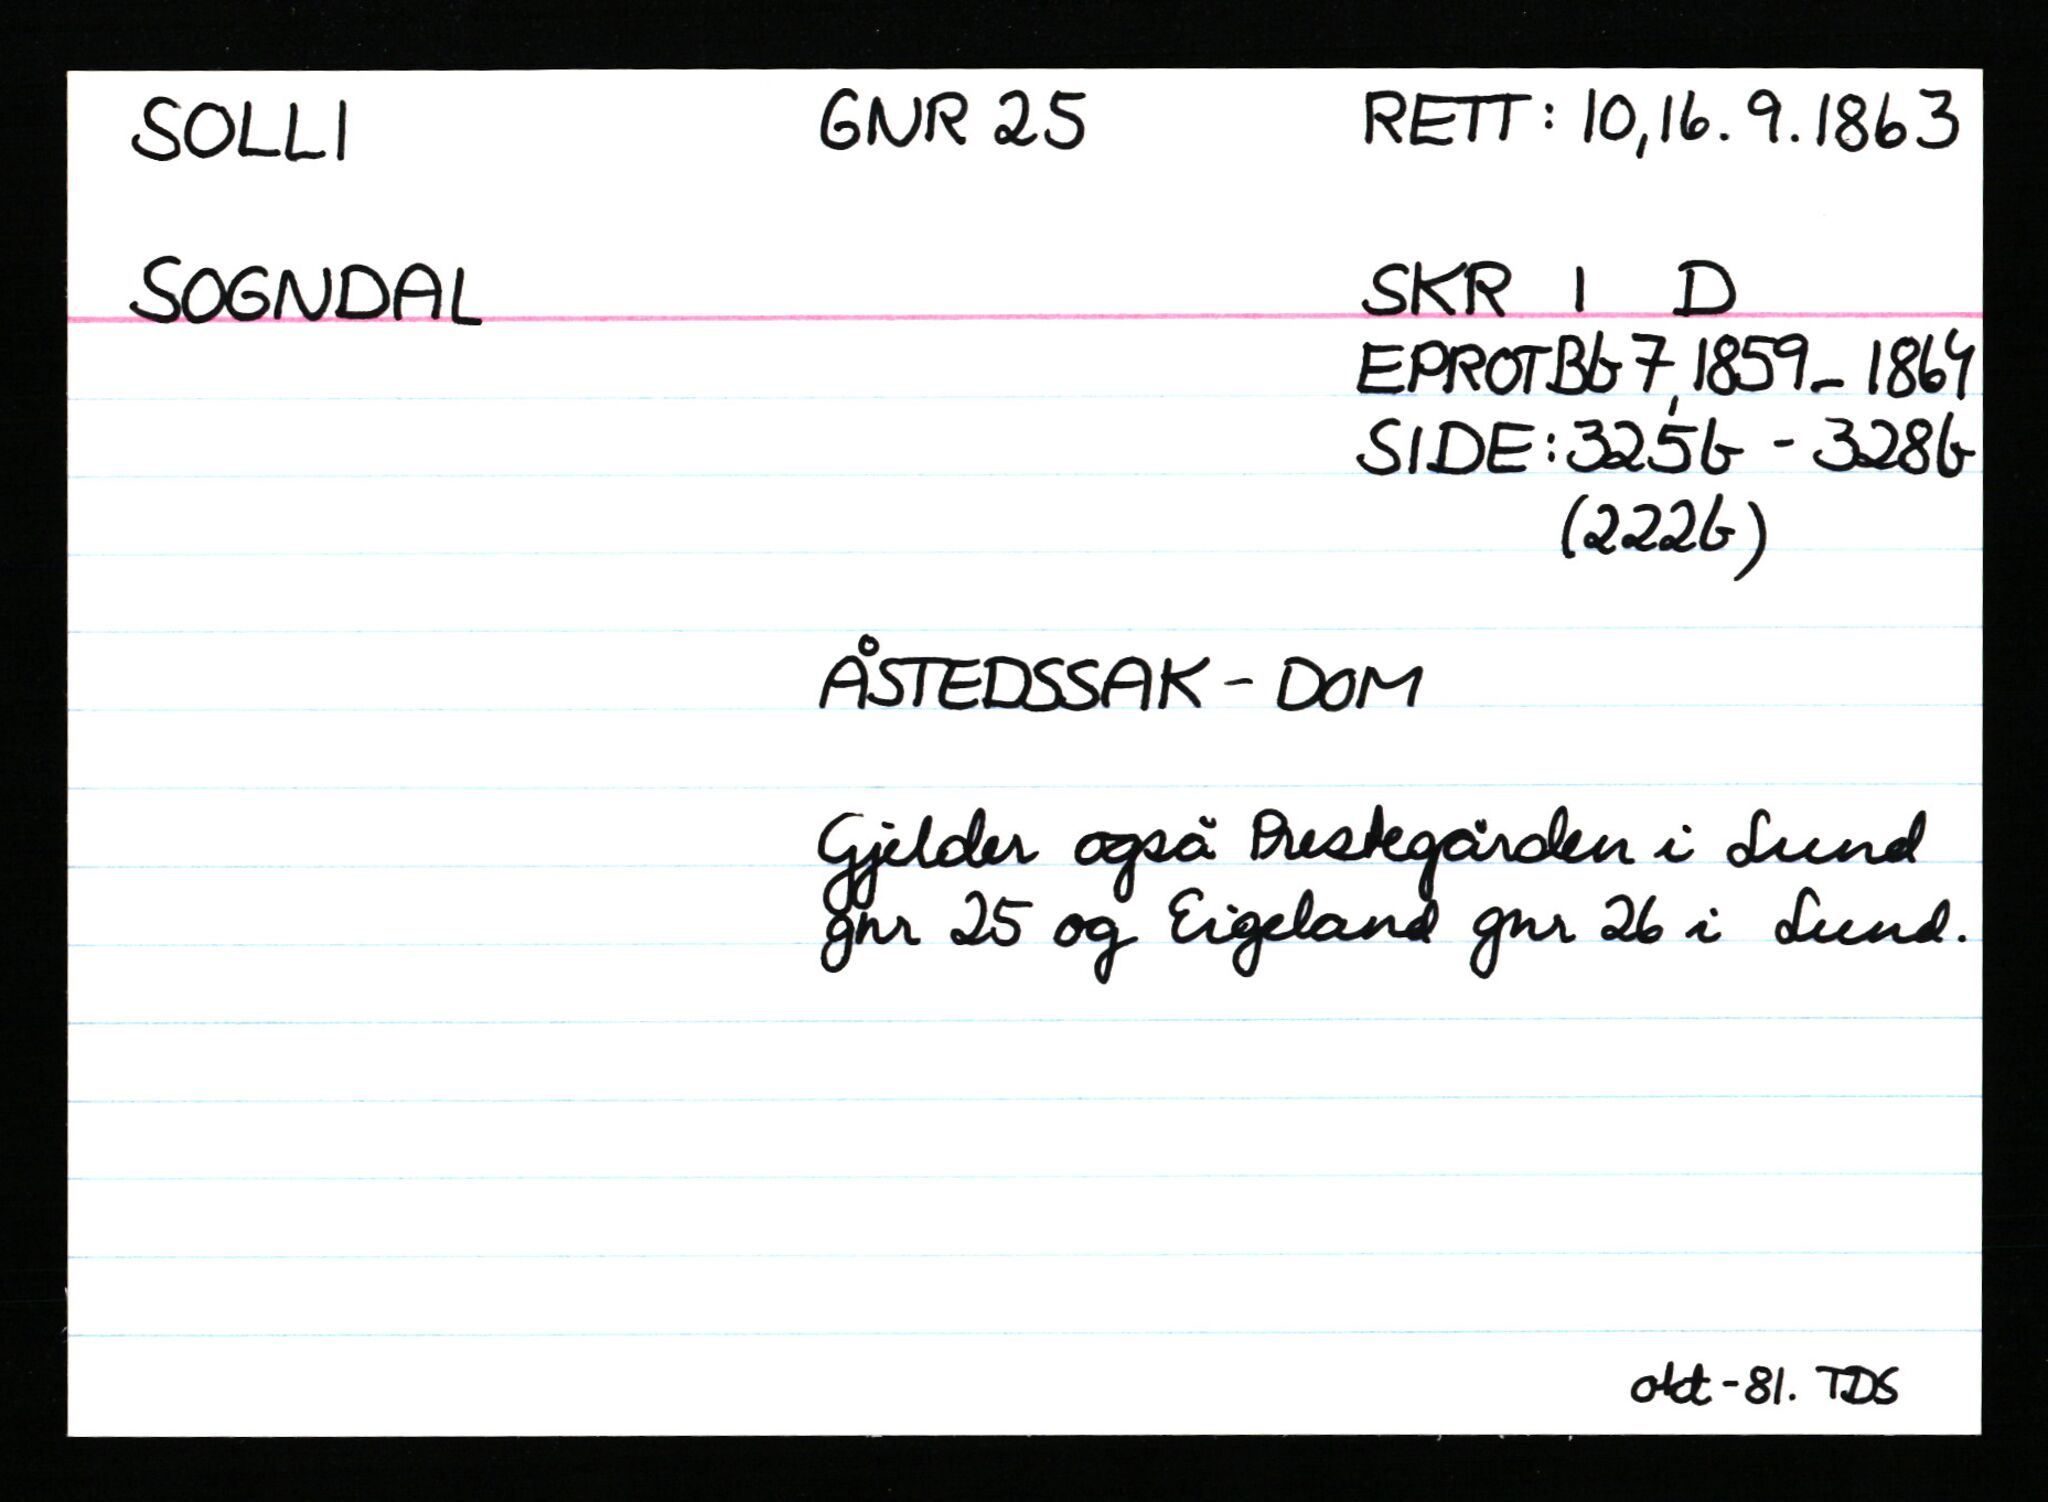 SOLLI GNR 25 RETT: 10,16.9.1863
SOGNDAL SKR I D
EPROTBb7, 1859-1864
SIDE: 325b - 328b
(222b)
ÅSTEDSSAK - DOM
Gjelder også Prestegården i Lund
gnr 25 og Eigeland gnr 26 i Lund.
okt-81. TDS